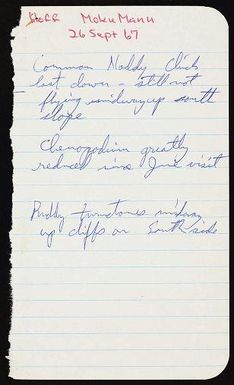 Moku Manu
26 Sept 67
Common Noddy Chick
lost down - still not
flying midway up south
slope
Chenopodium greatly
reduced since June visit
Ruddy turnstones midway
up cliffs on South side